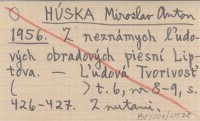 HÚSKA Miroslav Anton
1956. Z neznámych ľudo-
vých obradových piesní Lip-
tova. — Ľudová Tvorivosť
( ) t. 6, nr 8-9, s.
426-427. Z nutami.